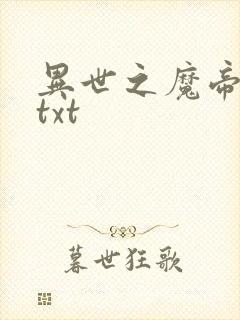 異世之魔帝
txt
暮世狂歌